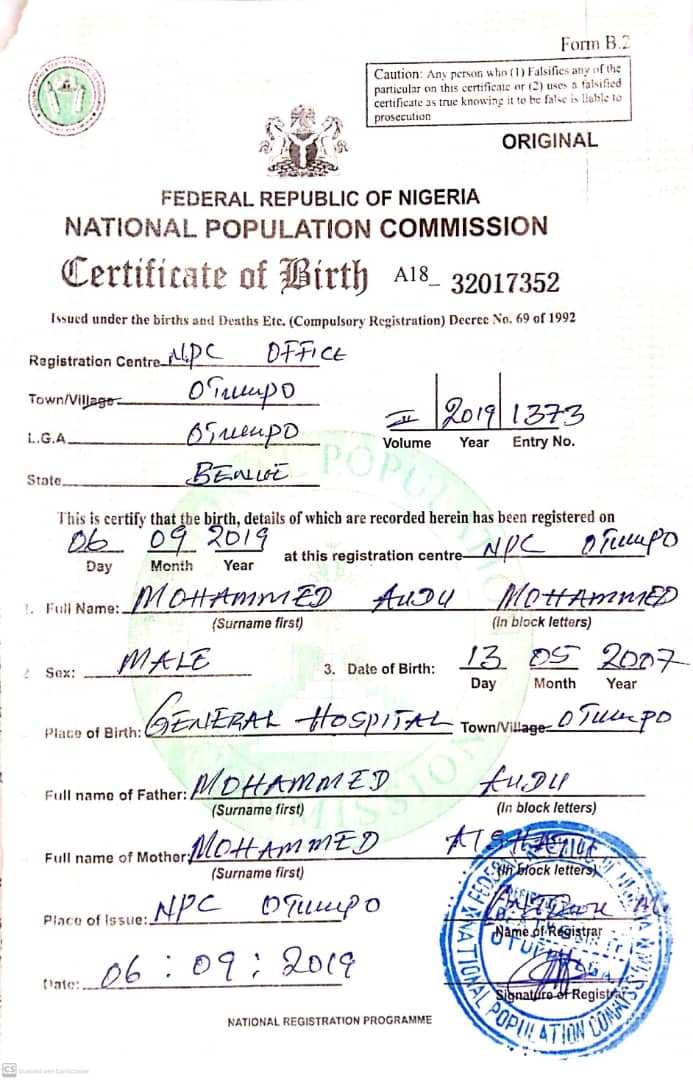 Form B.2
Caution: Any person who (1) Falsifies any of the
particular on this certificate or (2) uses a falsified
certificate as true knowing it to be false is liable to
prosecution
ORIGINAL
FEDERAL REPUBLIC OF NIGERIA
NATIONAL POPULATION COMMISSION
Certificate of Birth A18_ 32017352
Issued under the births and Deaths Etc. (Compulsory Registration) Decree No. 69 of 1992
Registration Centre NPC OFFICE
Town/Village OTUKPO
L.G.A OTUKPO
II 2019 1373
Volume Year Entry No.
State BENUE
This is certify that the birth, details of which are recorded herein has been registered on
06 09 2019 at this registration centre NPC OTUKPO
Day Month Year
1. Full Name: MOHAMMED AUDU MOHAMMED
(Surname first) (In block letters)
2 Sex: MALE 3. Date of Birth: 13 05 2007
Day Month Year
Place of Birth: GENERAL HOSPITAL Town/Village OTUKPO
Full name of Father: MOHAMMED AUDU
(Surname first) (In block letters)
Full name of Mother: MOHAMMED
(Surname first) (In block letters)
Place of Issue: NPC OTUKPO
Name of Registrar
Date: 06 : 09 : 2019
Signature of Registrar
NATIONAL POPULATION COMMISSION
NATIONAL REGISTRATION PROGRAMME
CS Scanned with CamScanner